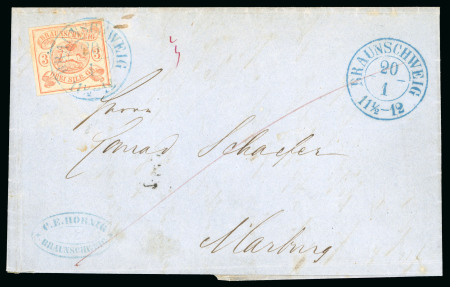 BRAUNSCHWEIG
BRAUNSCHWEIG
20
1
11½-12
Herrn
Conrad Schaefer
Marburg
C.F. HORNIG
BRAUNSCHWEIG